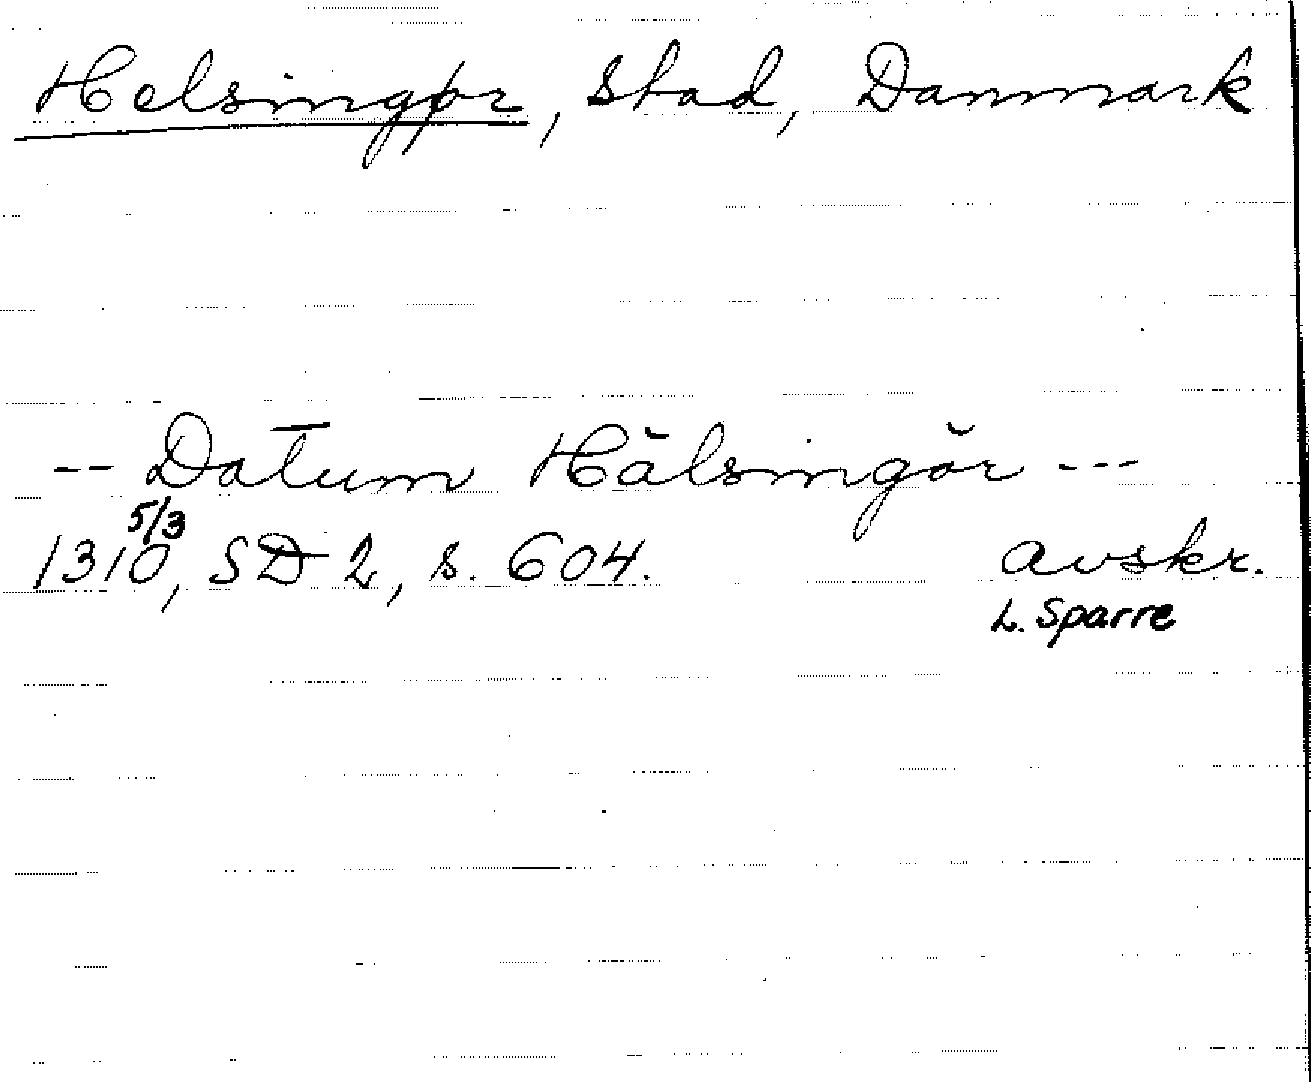 Helsingør, Stad, Danmark
-- Datum Hälsingör ---
5/3
1310, SD 2, s. 604. avskr.
L. Sparre